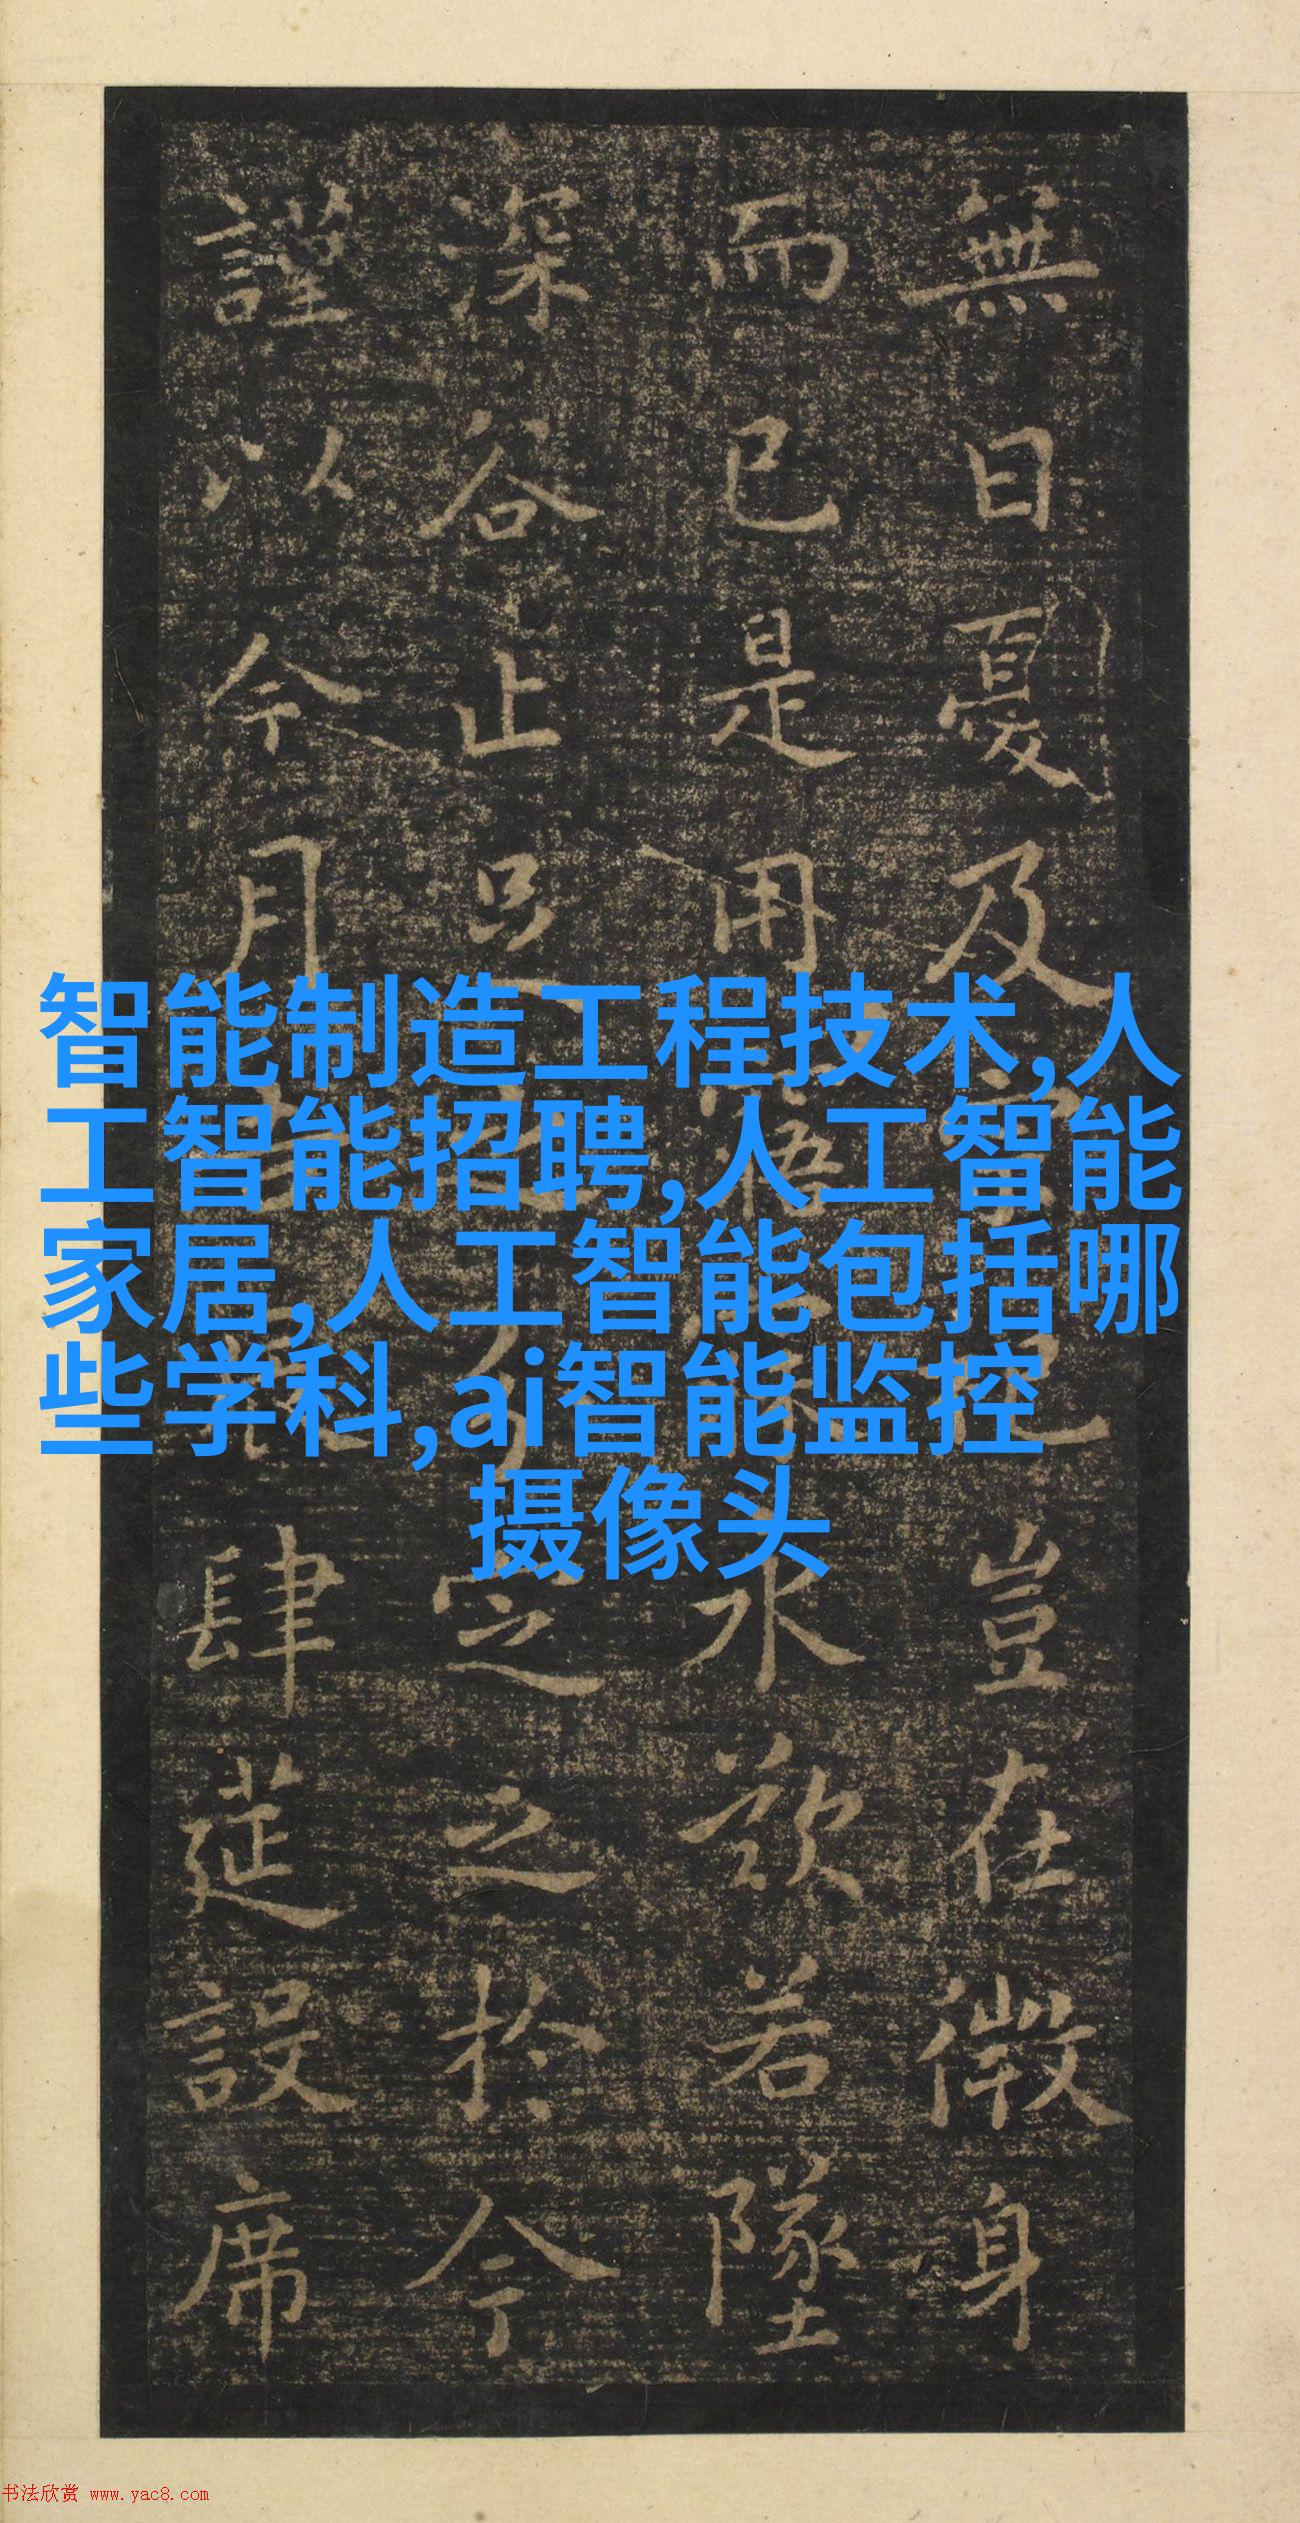 無日憂及宗祀豈在微身
而已是用寤寐永歎若墜
深谷止足之分定之於今
謹以今月吉辰肆筵設席
智能制造工程技术,人
工智能招聘,人工智能
家居,人工智能包括哪
些学科,ai智能监控
摄像头
书法欣赏 www.yac8.com